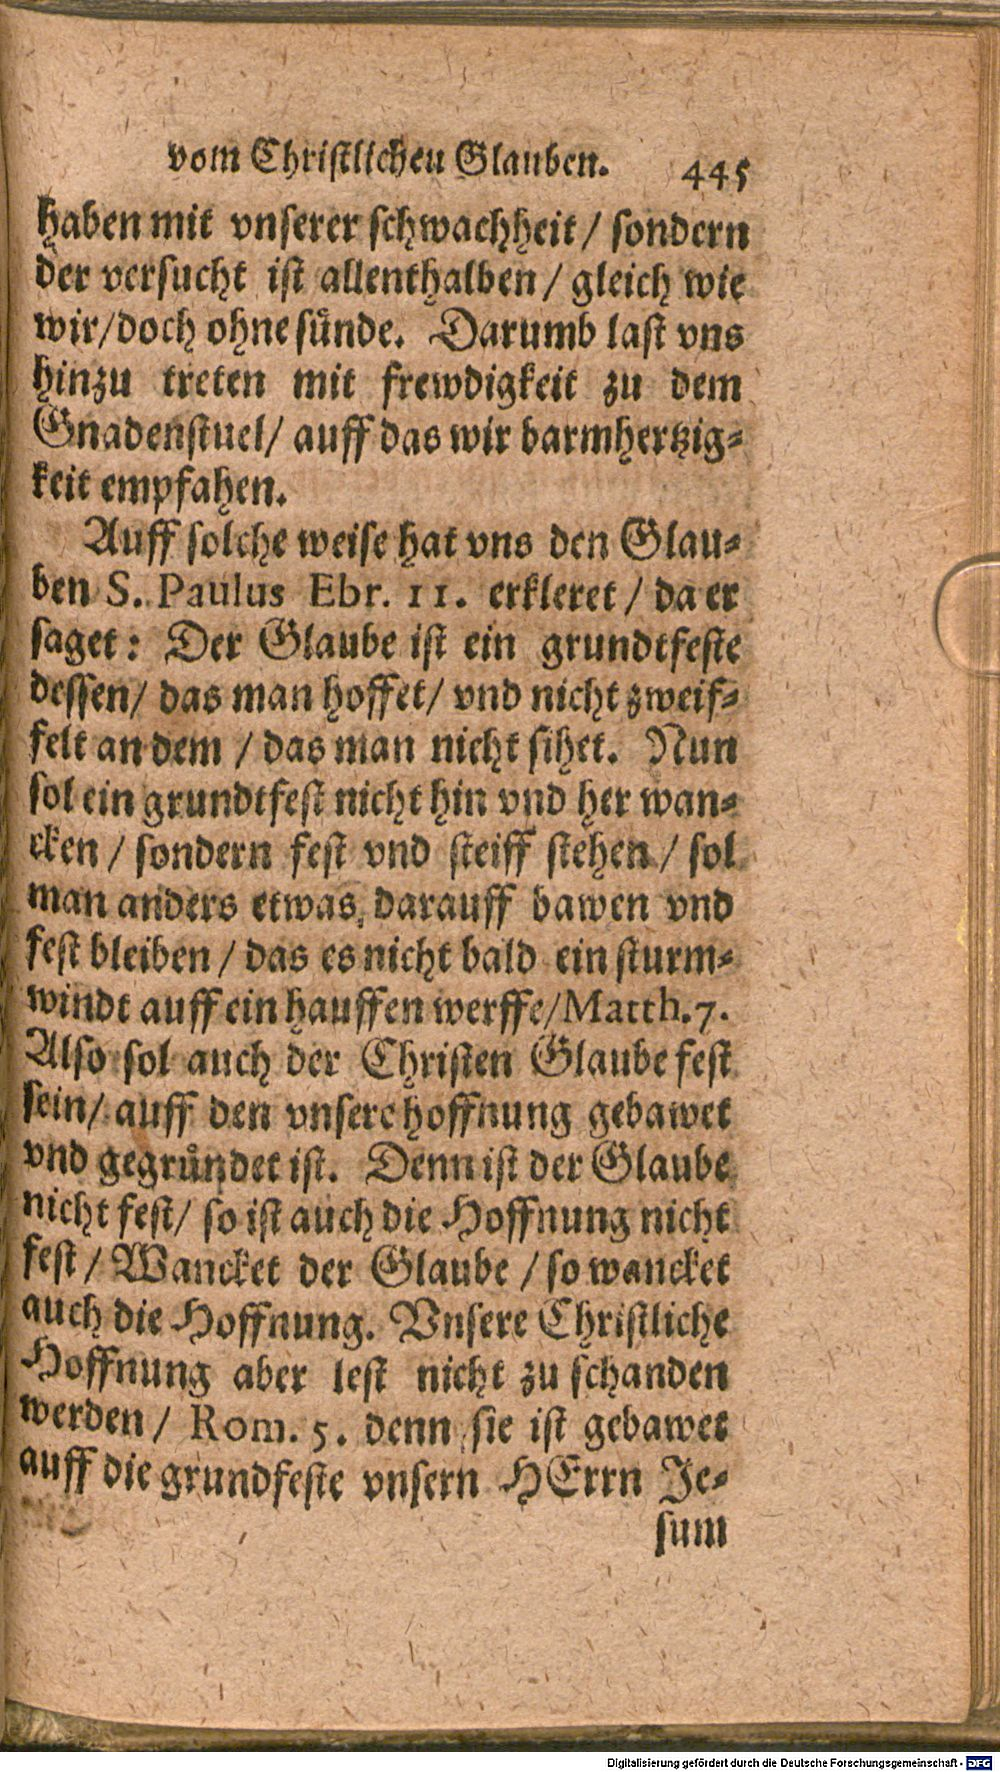 vom Christlichen Glauben. 445
haben mit vnserer schwachheit / sondern
der versucht ist allenthalben / gleich wie
wir/doch ohne sünde. Darumb last vns
hinzu treten mit frewdigkeit zu dem
Gnadenstuel/ auff das wir barmhertzig-
keit empfahen.
Auff solche weise hat vns den Glau-
ben S. Paulus Ebr. 11. erkleret / da er
saget: Der Glaube ist ein grundtfeste
dessen/ das man hoffet/ vnd nicht zweif-
felt an dem / das man nicht sihet. Nun
sol ein grundtfest nicht hin vnd her wan-
cken / sondern fest vnd steiff stehen / sol
man anders etwas darauff bawen vnd
fest bleiben / das es nicht bald ein sturm-
windt auff ein hauffen werffe/Matth. 7.
Also sol auch der Christen Glaube fest
sein/ auff den vnsere hoffnung gebawet
vnd gegründet ist. Denn ist der Glaube
nicht fest/ so ist auch die Hoffnung nicht
fest / Wancket der Glaube / so wancket
auch die Hoffnung. Vnsere Christliche
Hoffnung aber lest nicht zu schanden
werden / Rom. 5. denn sie ist gebawet
auff die grundfeste vnsern HErrn Je-
sum
Digitalisierung gefördert durch die Deutsche Forschungsgemeinschaft - DFG